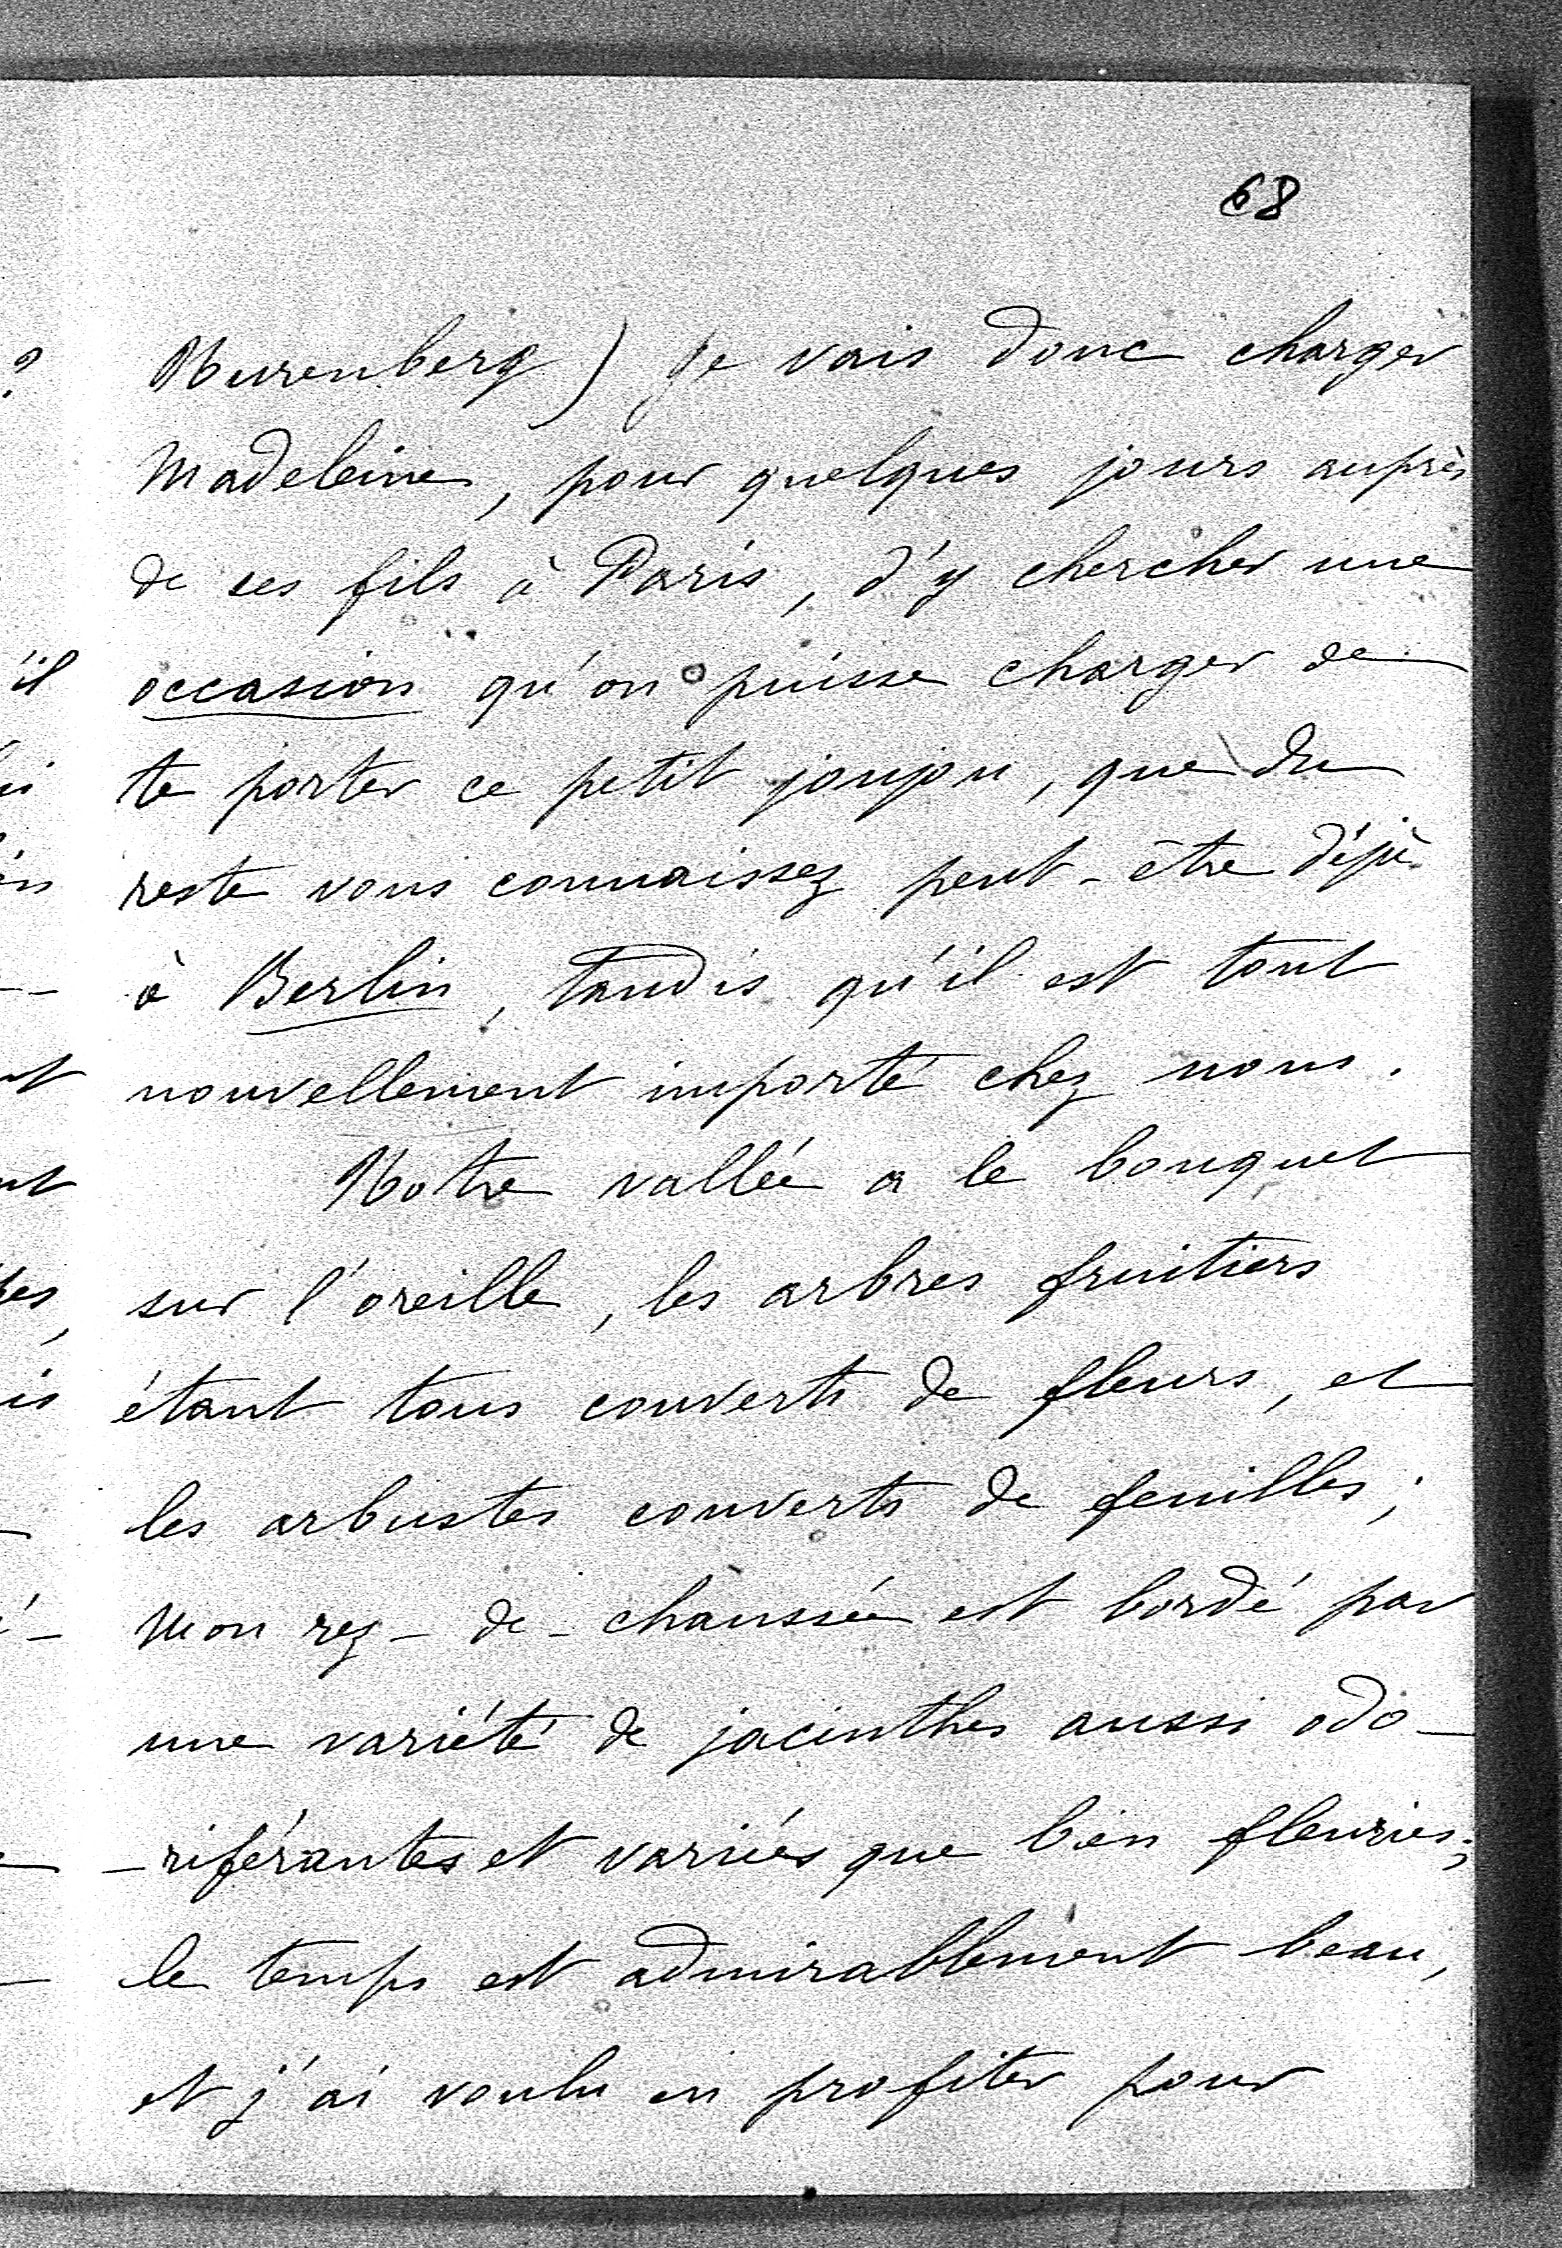 68
Nurenberg) Je vais donc charger
Madeleine, pour quelques jours auprès
de ses fils à Paris, d'y chercher une
occasion qu'on puisse charger de
te porter ce petit joujou, que du
reste vous connaissez peut-être déjà
à Berlin, tandis qu'il est tout
nouvellement importé chez nous.
Notre vallée a le bouquet
sur l'oreille, les arbres fruitiers
étant tous couverts de fleurs, et
les arbustes couverts de feuilles;
mon rez-de-chaussée est bordé par
une variété de jacinthes aussi odo-
-riférantes et variées que bien fleuries;
le temps est admirablement beau,
et j'ai voulu en profiter pour